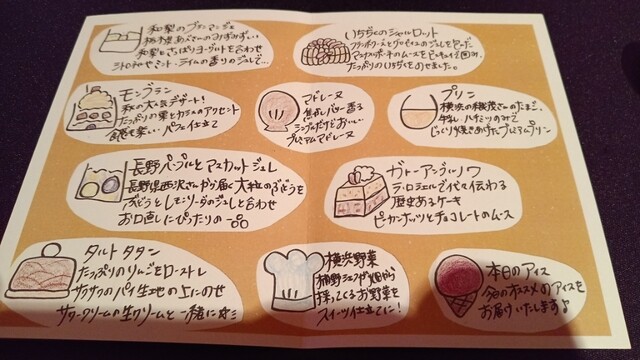 和梨のブランマンジェ
和梨とさっぱりヨーグルトを合わせ
ミント、ライムの香りのジュレで…
いちぢくのシャルロット
マスカルポーネのムースをビスキュイで囲み
たっぷりのいちぢくをのせました。
モンブラン
秋の大人気デザート!
たっぷりの栗とカシスのアクセント
食感も楽しいパフェ仕立て
マドレーヌ
焦がしバター香る
シンプルだけどおいしい
プレミアムマドレーヌ
プリン
横浜の さんのたまご、
牛乳、ハチミツのみで
じっくり焼きあげたプレミアムプリン
長野パープルとマスカットジュレ
長野県西沢さんから届く大粒のぶどうを
ぶどうとレモンソーダのジュレと合わせ
お口直しにぴったりの一品
ガトー・アングルノワ
ラ・ロシェルで代々伝わる
歴史あるケーキ
ピーカンナッツとチョコレートのムース
タルトタタン
たっぷりのりんごをローストし
サクサクのパイ生地の上にのせ
サワークリームの生クリームと一緒に
横浜野菜
シェフが畑から
採ってくるお野菜を
スイーツ仕立てに!
本日のアイス
今日のオススメのアイスを
お届けいたします♪